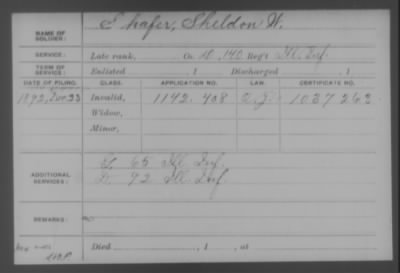 NAME OF SOLDIER: Shafer, Sheldon W.
SERVICE: Late rank, Co. 140 Reg't Ill. Inf.
TERM OF SERVICE: Enlisted , 1 Discharged , 1
DATE OF FILING. CLASS. APPLICATION NO. LAW. CERTIFICATE NO.
1892, 23 Invalid, 1142.408 1037263
Widow,
Minor,
ADDITIONAL SERVICES:
65 Ill. Inf.
D. 72 Ill. Inf.
REMARKS:
Died , 1 , at